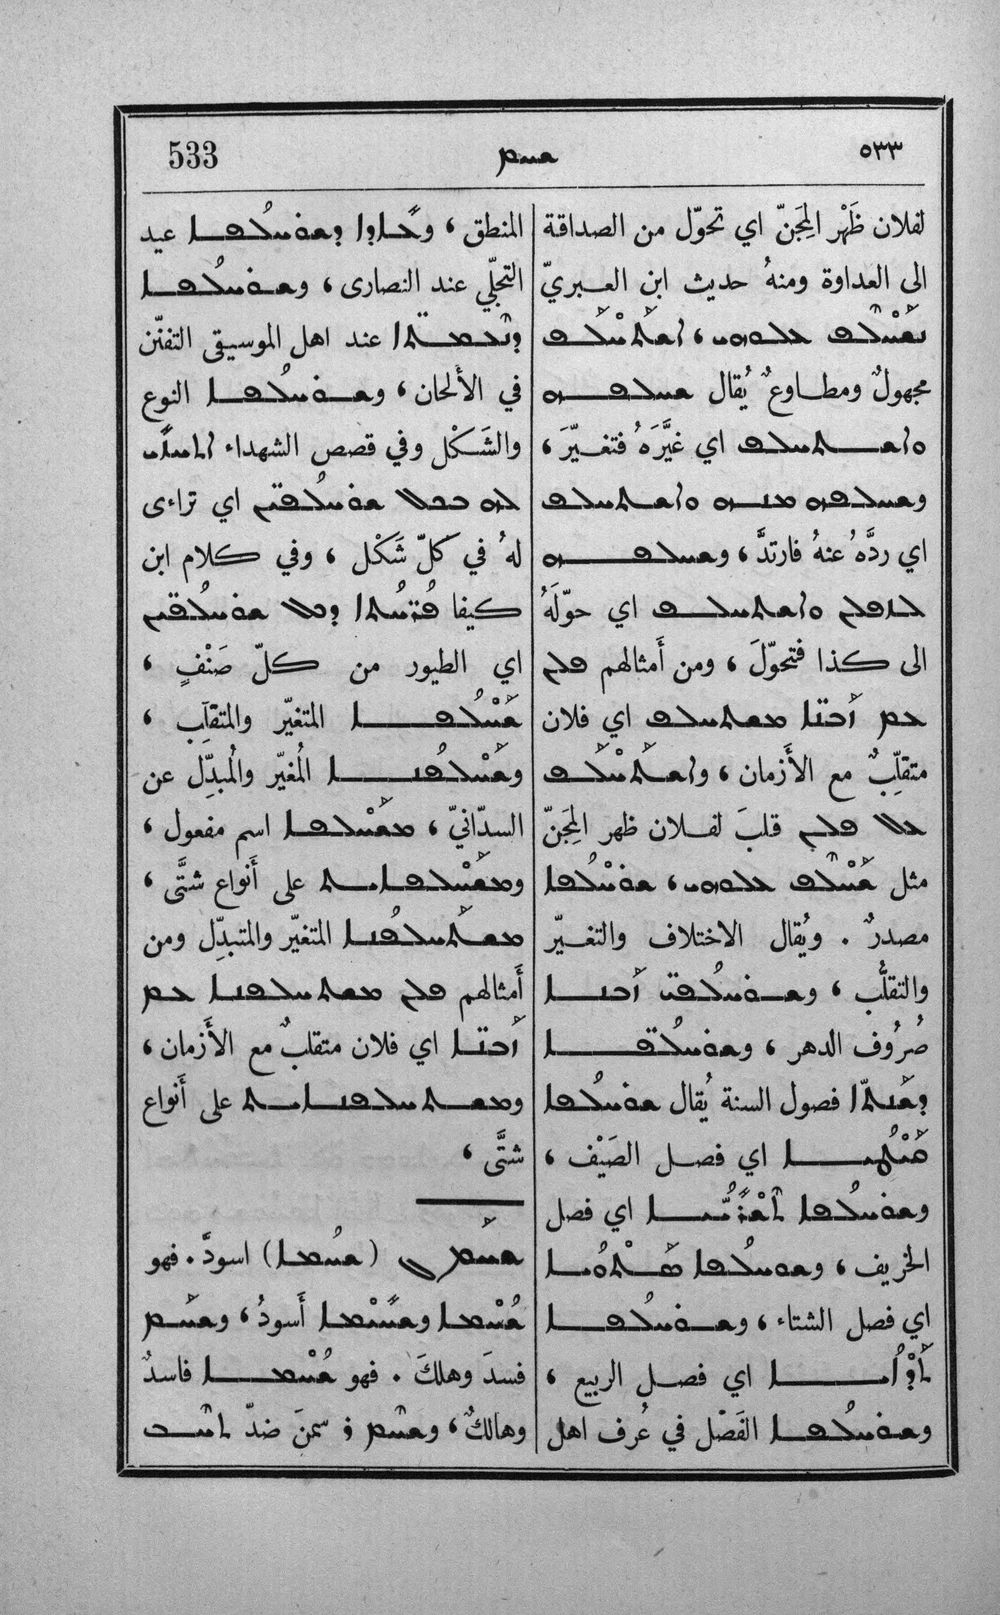 533 ܫܚܡ ٥٣٣
لفلان ظَهْر المِجَنّ اي تحوّل من الصداقة
الى العداوة ومنهُ حديث ابن العبريّ
ܥܠܘܗܝ ،
مجهولٌ ومطاوعٌ يُقال ܫܚܠܦܗ
ܘܐܫܬܚܠܦ اي غيَّرَهُ فتغيّرَ ،
ܘܫܚܠܦܗ ܡܢܗ ܘܐܫܬܚܠܦ
اي ردَّهُ عنهُ فارتدَّ ، ܘܫܚܠܦܗ
ܠܐܦܠܢ ܘܐܫܬܚܠܦ اي حوّلَهُ
الى كذا فتحوّلَ ، ومن أَمثالهم ܦܠܢ
ܥܡ ܙܒܢ̈ܐ ܡܫܬܚܠܦ اي فلان
متقلِّبٌ مع الأَزمان ، ܘܐܫܬܚܠܦ
ܥܠ ܦܠܢ قلبَ لفلان ظهر المِجَنّ
مثل ܫܚܠܦ ܥܠܘܗܝ ، ܫܘܚܠܦܐ
مصدرٌ . ويُقال الاختلاف والتغيّر
والتقلُّب ، ܘܫܘܚܠܦ̈ܝ ܙܒܢܐ
صُرُوف الدهر ، ܘܫܘܚܠܦ̈ܐ
ܕܫܢܬܐ فصول السنة يُقال ܫܘܚܠܦܐ
ܩܝܛܝܐ اي فصل الصَيْف ،
ܘܫܘܚܠܦܐ ܬܫܪܝܝܐ اي فصل
الخريف ، ܘܫܘܚܠܦܐ ܣܬܘܝܐ
اي فصل الشتاء ، ܘܫܘܚܠܦܐ
ܬܕܐܝܐ اي فصل الربيع ،
ܘܫܘܚܠܦܐ الفَصْل في عُرف اهل
المنطق ، ܘܥܐܕܐ ܕܫܘܚܠܦܐ عيد
التجلّي عند النصارى ، ܘܫܘܚܠܦܐ
ܕܢܥܡ̈ܬܐ عند اهل الموسيقى التفنّن
في الأَلحان ، ܘܫܘܚܠܦܐ النوع
والشَكْل وفي قصص الشهداء ܐܬܚܙܝ
ܠܗ ܒܟܠ ܫܘܚܠܦ̈ܝܢ اي تراءى
لهُ في كلّ شَكْل ، وفي كلام ابن
كيفا ܦܪ̈ܚܬܐ ܕܟܠ ܫܘܚܠܦ̈ܝܢ
اي الطيور من كلّ صَنْفٍ ،
ܫܚܠܦܐ المتغيّر والمتقلِّب ،
ܘܫܚܠܦܢܐ المُغيّر والمُبدِّل عن
السدّانيّ ، ܡܫܚܠܦܐ اسم مفعول ،
ܘܡܫܚܠܦܐܝܬ على أَنواع شتَّى ،
ܡܫܬܚܠܦܢܐ المتغيّر والمتبدِّل ومن
أَمثالهم ܦܠܢ ܡܫܬܚܠܦܢܐ ܥܡ
ܙܒܢ̈ܐ اي فلان متقلبٌ مع الأَزمان ،
ܘܡܫܬܚܠܦܢܐܝܬ على أَنواع
شتَّى ،
ܫܚܡ (ܫܚܡܐ) اسودَّ . فهو
ܫܚܡܐ ܘܫܚܝܡܐ أَسودُ ، ܘܫܚܡ
فسدَ وهلكَ . فهو ܫܚܡܐ فاسدٌ
وهالكٌ ، ܘܫܚܡ ܕ سمنَ ضدّ